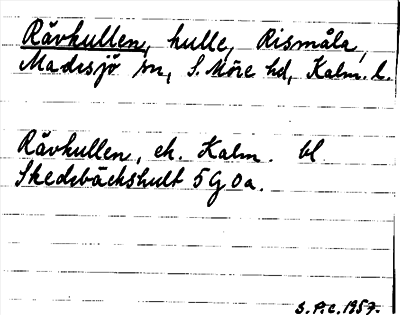 Rävkullen, kulle, Rismåla,
Madesjö sn, S. Möre hd, Kalm. l.
Rävkullen, ek. Kalm. bl
Skedebäckshult 5 G 0 a.
S.P.C. 1957.